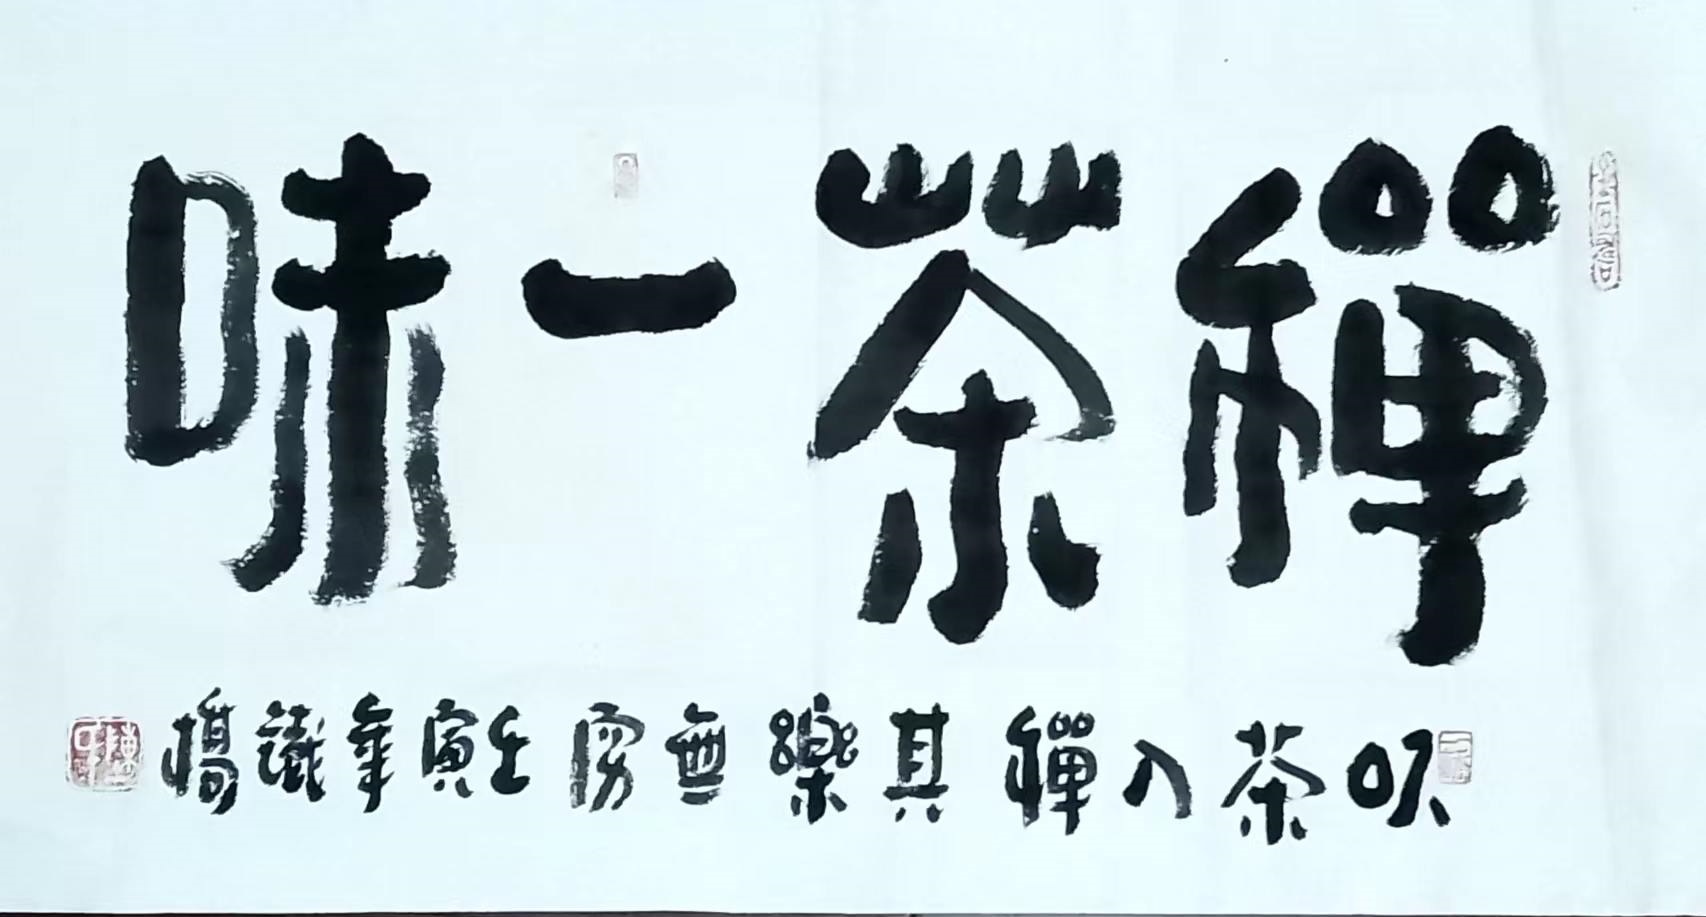 禪茶一味
以茶入禪其樂無穷壬寅年識楊